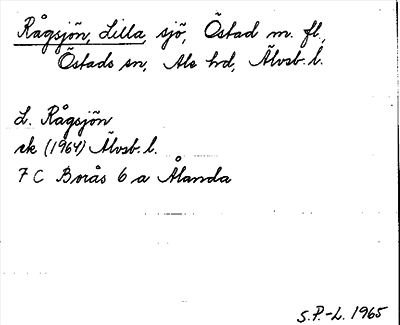 Rågsjön, Lilla, sjö, Östad m. fl.,
Östads sn, Ale hd, Älvsb. l.
L. Rågsjön
ek (1964) Älvsb. l.
7 C Borås 6 a Ålanda
S.P.-L. 1965